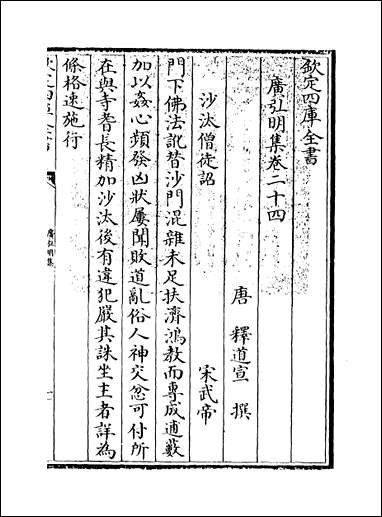 欽定四庫全書
廣弘明集卷二十四
唐 釋道宣 撰
沙汰僧徒詔 宋武帝
門下佛法訛替沙門混雜未足扶濟鴻教而專成逋藪
加以姦心頻發凶狀屢聞敗道亂俗人神交忿可付所
在與寺耆長精加沙汰後有違犯嚴其誅坐主者詳為
條格速施行
廣弘明集